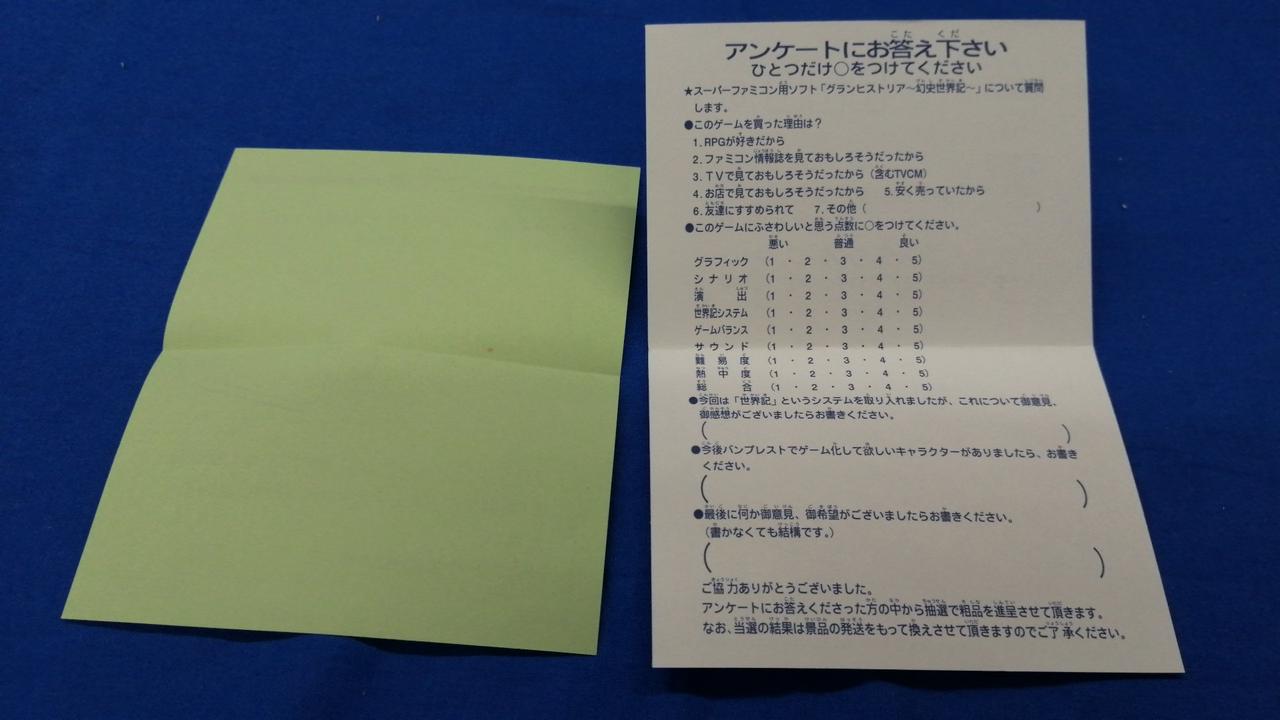 アンケートにお答え下さい
ひとつだけ○をつけてください
★スーパーファミコン用ソフト「グランヒストリア〜幻史世界記〜」について質問
します。
●このゲームを買った理由は？
1. RPGが好きだから
2. ファミコン情報誌を見ておもしろそうだったから
3. TVで見ておもしろそうだったから（含むTVCM）
4. お店で見ておもしろそうだったから　5. 安く売っていたから
6. 友達にすすめられて　7. その他（　）
●このゲームにふさわしいと思う点数に○をつけてください。
悪い　普通　良い
グラフィック（1 ・ 2 ・ 3 ・ 4 ・ 5）
シナリオ（1 ・ 2 ・ 3 ・ 4 ・ 5）
演出（1 ・ 2 ・ 3 ・ 4 ・ 5）
世界記システム（1 ・ 2 ・ 3 ・ 4 ・ 5）
ゲームバランス（1 ・ 2 ・ 3 ・ 4 ・ 5）
サウンド（1 ・ 2 ・ 3 ・ 4 ・ 5）
難易度（1 ・ 2 ・ 3 ・ 4 ・ 5）
熱中度（1 ・ 2 ・ 3 ・ 4 ・ 5）
総合（1 ・ 2 ・ 3 ・ 4 ・ 5）
●今回は「世界記」というシステムを取り入れましたが、これについて御意見、
御感想がございましたらお書きください。
（　）
●今後バンプレストでゲーム化して欲しいキャラクターがありましたら、お書き
ください。
（　）
●最後に何か御意見、御希望がございましたらお書きください。
（書かなくても結構です。）
（　）
ご協力ありがとうございました。
アンケートにお答えくださった方の中から抽選で粗品を進呈させて頂きます。
なお、当選の結果は景品の発送をもって換えさせて頂きますのでご了承ください。